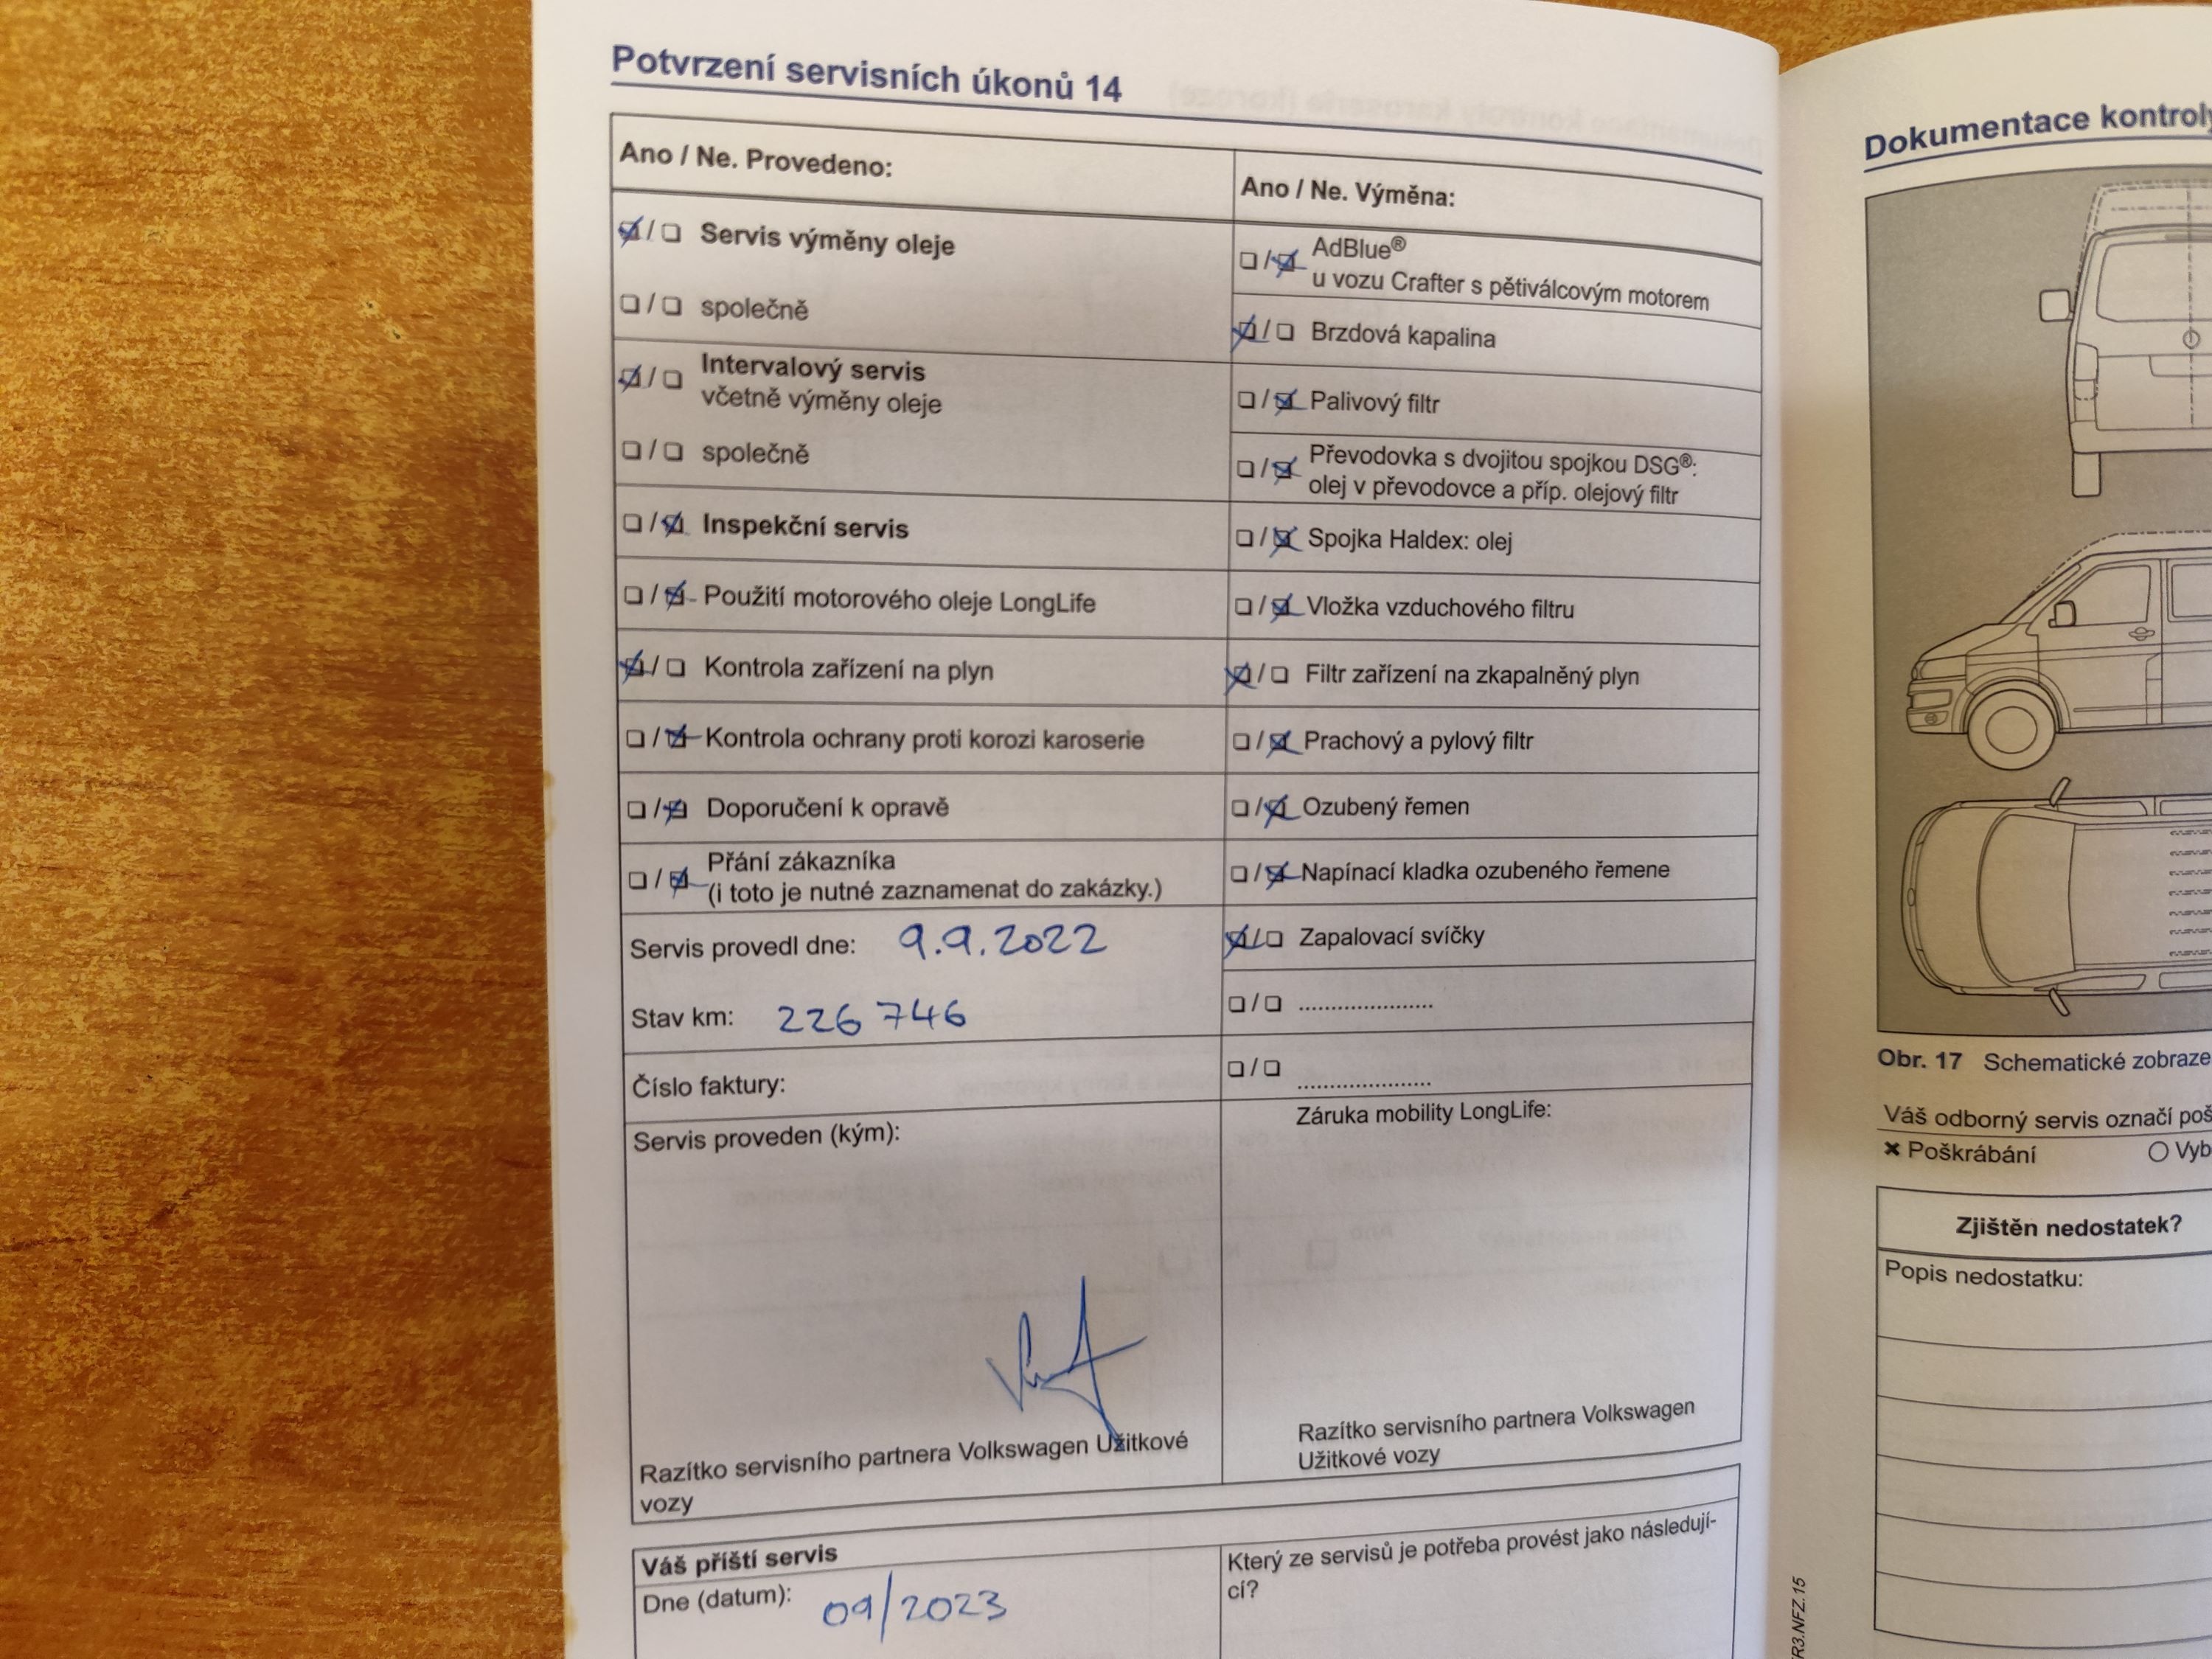 Potvrzení servisních úkonů 14
Ano / Ne. Provedeno:
Servis výměny oleje
společně
Intervalový servis
včetně výměny oleje
společně
Inspekční servis
Použití motorového oleje LongLife
Kontrola zařízení na plyn
Kontrola ochrany proti korozi karoserie
Doporučení k opravě
Přání zákazníka
(i toto je nutné zaznamenat do zakázky.)
Servis provedl dne: 9.9.2022
Stav km: 226 746
Číslo faktury:
Servis proveden (kým):
Razítko servisního partnera Volkswagen Užitkové
vozy
Ano / Ne. Výměna:
AdBlue®
u vozu Crafter s pětiválcovým motorem
Brzdová kapalina
Palivový filtr
Převodovka s dvojitou spojkou DSG®:
olej v převodovce a příp. olejový filtr
Spojka Haldex: olej
Vložka vzduchového filtru
Filtr zařízení na zkapalněný plyn
Prachový a pylový filtr
Ozubený řemen
Napínací kladka ozubeného řemene
Zapalovací svíčky
Záruka mobility LongLife:
Razítko servisního partnera Volkswagen
Užitkové vozy
Váš příští servis
Dne (datum): 09/2023
Který ze servisů je potřeba provést jako následují-
cí?
Dokumentace kontroly
Obr. 17 Schematické zobraze
Váš odborný servis označí poš
Poškrábání
Vyb
Zjištěn nedostatek?
Popis nedostatku:
R3.NFZ.15